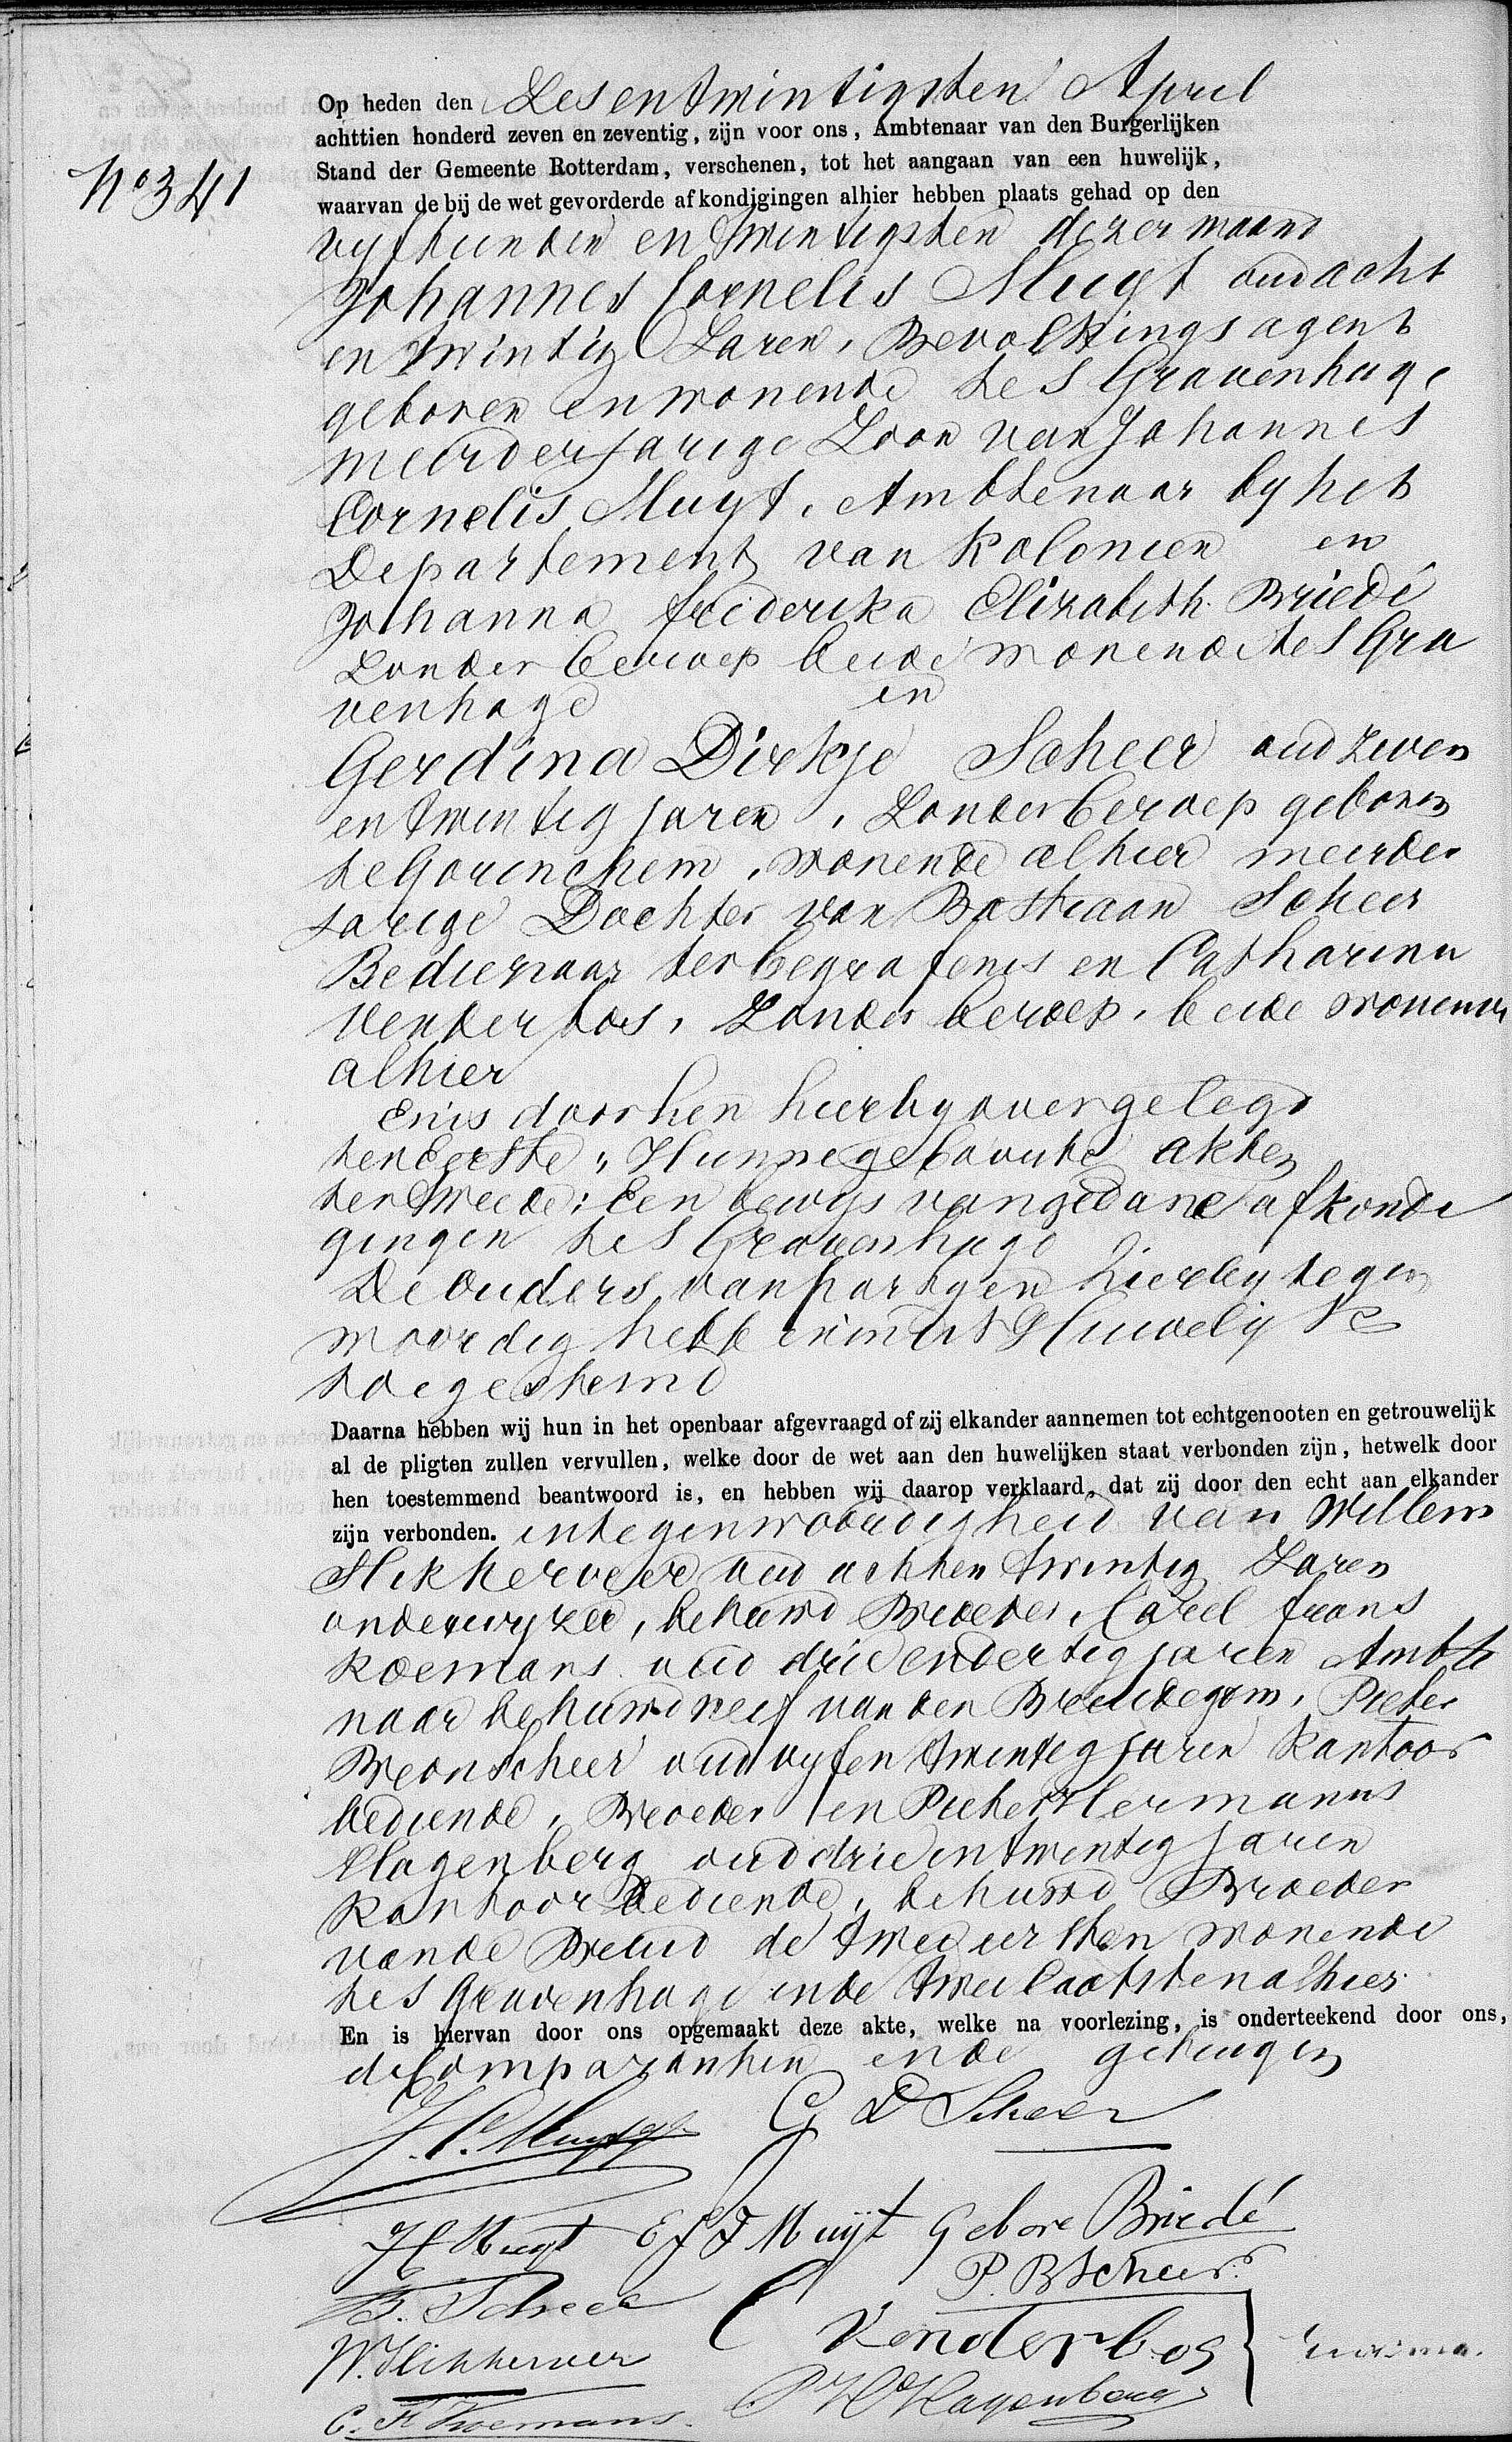 Op heden den Zesentwintigsten April
achttien honderd zeven en zeventig, zijn voor ons, Ambtenaar van den Burgerlijken
Stand der Gemeente Rotterdam, verschenen, tot het aangaan van een huwelijk,
No 341
waarvan de bij de wet gevorderde afkondigingen alhier hebben plaats gehad op den
vyftienden en twintigsten dezer maand
Johannes Cornelis Muyt oud acht
en twintig Jaren, Bevolkingsagent
geboren en wonende te S Gravenhage
meerderjarige Zoon van Johannes
Cornelis Muyt, Ambtenaar by het
Departement van Kolonien en
Johanna frederika Elizabeth Briedé
Zonder beroep beide wonende te S Gra
venhage en
Gerdina Dirkje Scheer oud zeven
en twintig jaren, Zonder beroep geboren
te Gorinchem, wonende alhier meerder
jarige Dochter van Bastiaan Scheer
Bedienaar ter begrafenis en Catharina
Venderbos, Zonder beroep, beide wonende
alhier
En is door hen hierby overgelegd
ten Eerste: Hunne geboorte akten
ten tweede: Een bewys van gedane afkondi
gingen te S Gravenhage
De ouders van partyen hierby tegen
woordig hebben in dit Huwelijk
toegestemd
Daarna hebben wij hun in het openbaar afgevraagd of zij elkander aannemen tot echtgenooten en getrouwelijk
al de pligten zullen vervullen, welke door de wet aan den huwelijken staat verbonden zijn, hetwelk door
hen toestemmend beantwoord is, en hebben wij daarop verklaard, dat zij door den echt aan elkander
zijn verbonden. in tegenwoordigheid van Willem
Slikkerveer oud acht en twintig Jaren
onderwyzer, behuwd Broeder, Carel frans
Koemans oud drie en dertig jaren Ambte
naar behuwd neef van den Bruidegom, Pieter
Bvoon Scheer oud vyf en twintig jaren Kantoor
bediende, Broeder en Pieter Hermanus
Hagenberg oud drie en twintig jaren
Kantoor bediende, behuwd Broeder
van de Bruid de twee eersten wonende
te S Gravenhage en de twee laatsten alhier
En is hiervan door ons opgemaakt deze akte, welke na voorlezing, is onderteekend door ons,
de Comparanten en de getuigen
J. C. Muyt G D Scheer
J C Muyt E F J Muijt Gebore Briedé
B. Scheer P. B Scheer
W. Slikkerveer C Venderbos
C. F. Koemans P H Hagenberg